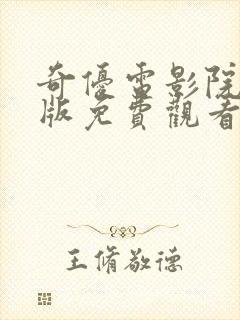 奇優電影院
版免費觀看
王脩敬德